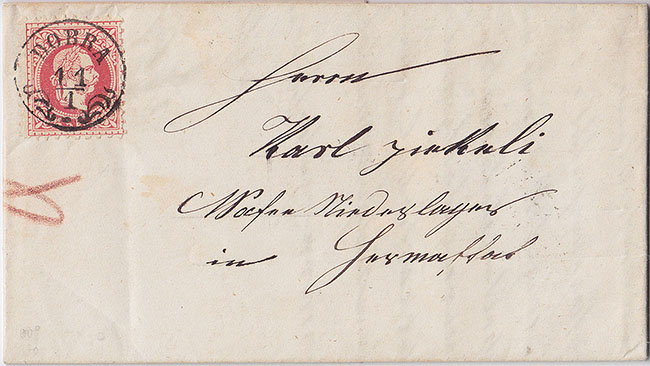 DOBRA
11
1
Herrn
Karl Jickeli
Niederlager
in Hermastat